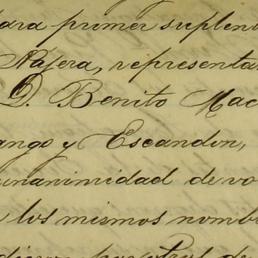 para primer suplen
Nájera, representa
D. Benito Mac
ango y Escandon,
unanimidad de vo
los mismos nomb